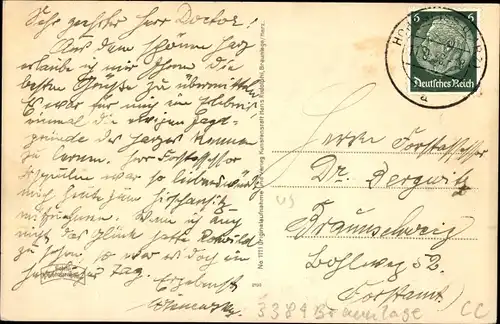 Sehr geehrter Herr Doctor!
Aus dem schönen Harz
erlaube ich mir Ihnen die
besten Grüße zu übermitteln.
Es war für mich ein Erlebnis
einmal die Jagd-
gründe des Harzes kennen
zu lernen. Herr Forstassessor
war so liebenswürdig
mich heute zum
mitzunehmen. Wenn ich auch
nicht das Glück hatte Rotwild
zu sehen, so war es doch ein
Tag. Ergebenst
No 1171 Originalaufnahme u. Verlag Kunstanstalt Hans Rudolphi, Braunlage/Harz.
6 6
Deutsches Reich
a
Herrn Forstassessor
Dr. Bergwitz
Braunschweig
Bohlweg 52
Forstamt
3389 Braunlage CC